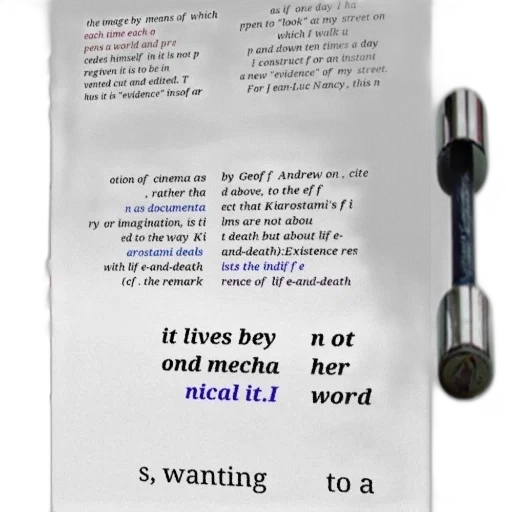 the image by means of which
each time each o
pens a world and pre
cedes himself in it is not p
regiven it is to be in
vented cut and edited. T
hus it is "evidence" insofar
as if one day I ha
ppen to "look" at my street on
which I walk u
p and down ten times a day
I construct for an instant
a new "evidence" of my street.
For Jean-Luc Nancy, this n
otion of cinema as
, rather tha
n as documenta
ry or imagination, is ti
ed to the way Ki
arostami deals
with life-and-death
(cf. the remark
by Geoff Andrew on , cite
d above, to the eff
ect that Kiarostami's fi
lms are not abou
t death but about life-
and-death):Existence res
ists the indiffe
rence of life-and-death
it lives bey
ond mecha
nical it.I
n ot
her
word
s, wanting
to a